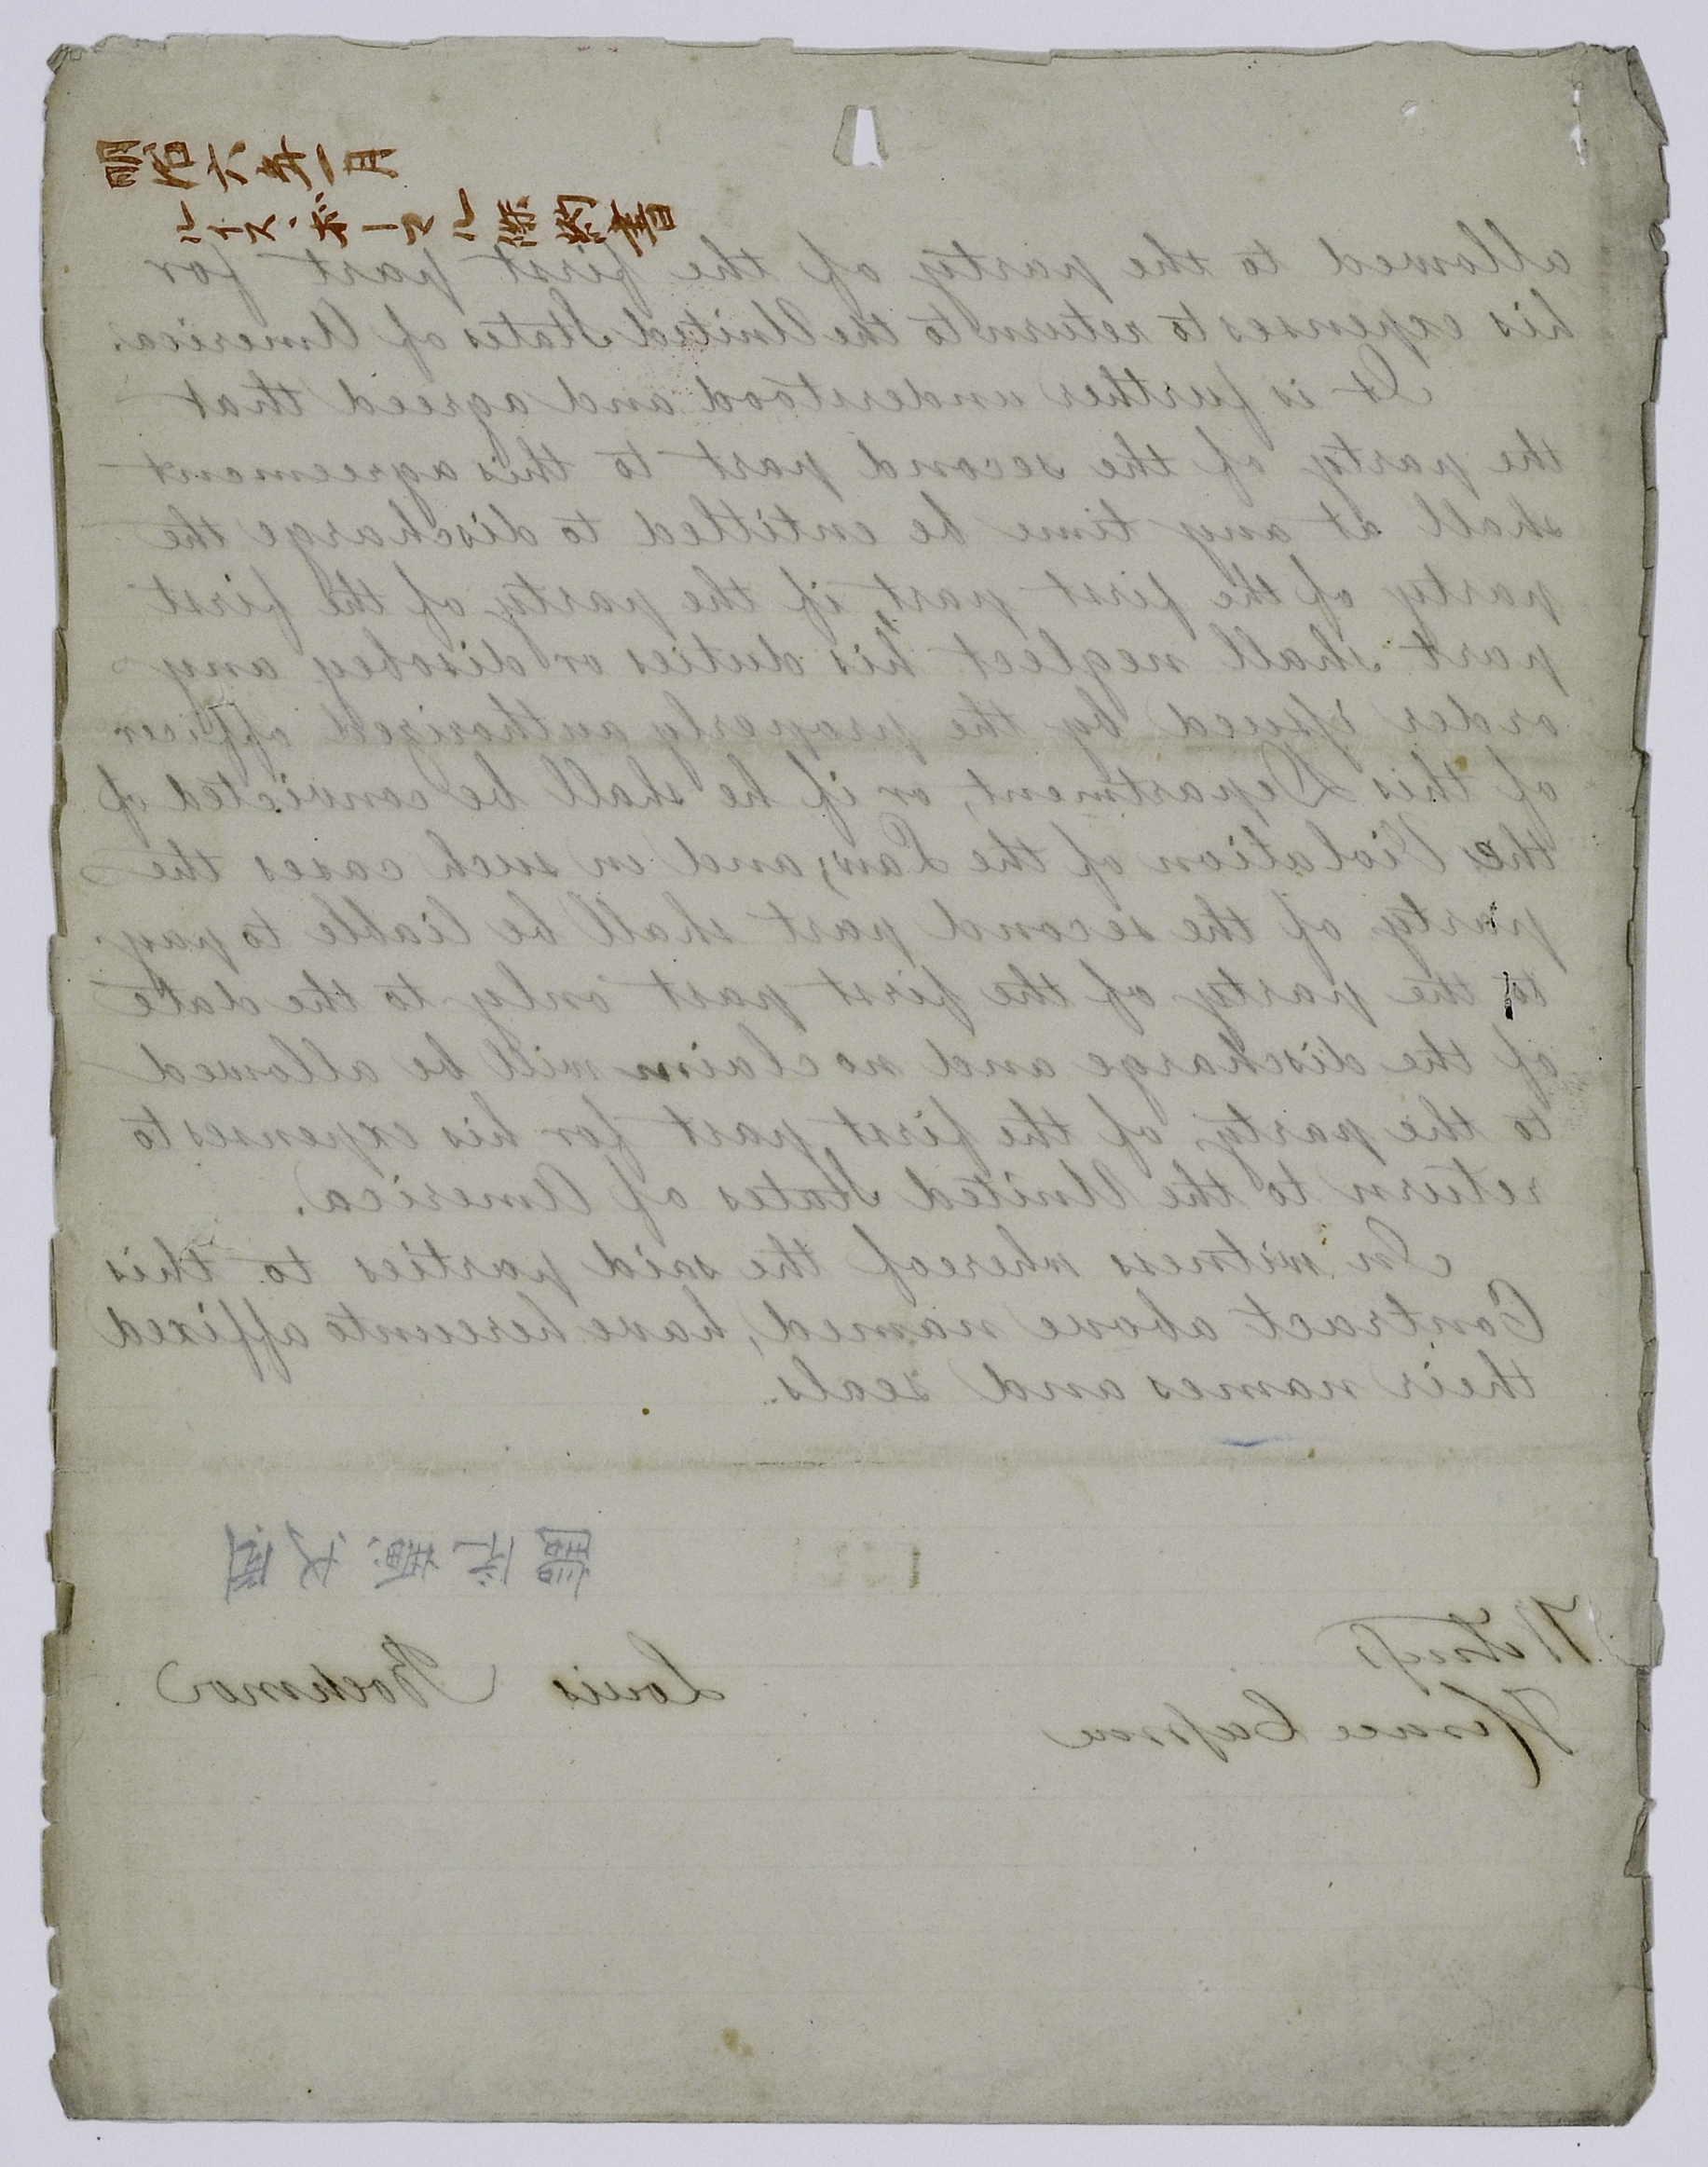 明治六年一月
ルイス、ボーマル條約書
allowed to the party of the first part for
his expenses to return to the United States of America.
It is further understood and agreed that
the party of the second part to this agreement
shall at any time be entitled to discharge the
party of the first part, if the party of the first
part shall neglect his duties or disobey any
order issued by the properly authorized officer
of this Department, or if he shall be convicted of
the Violation of the Law; and in such cases the
party of the second part shall be liable to pay
to the party of the first part only to the date
of the discharge and no claim will be allowed
to the party of the first part for his expenses to
return to the United States of America.
In witness whereof the said parties to this
Contract above named, have hereunto affixed
their names and seals.
Louis Boehmer
Witness
Horace Capron